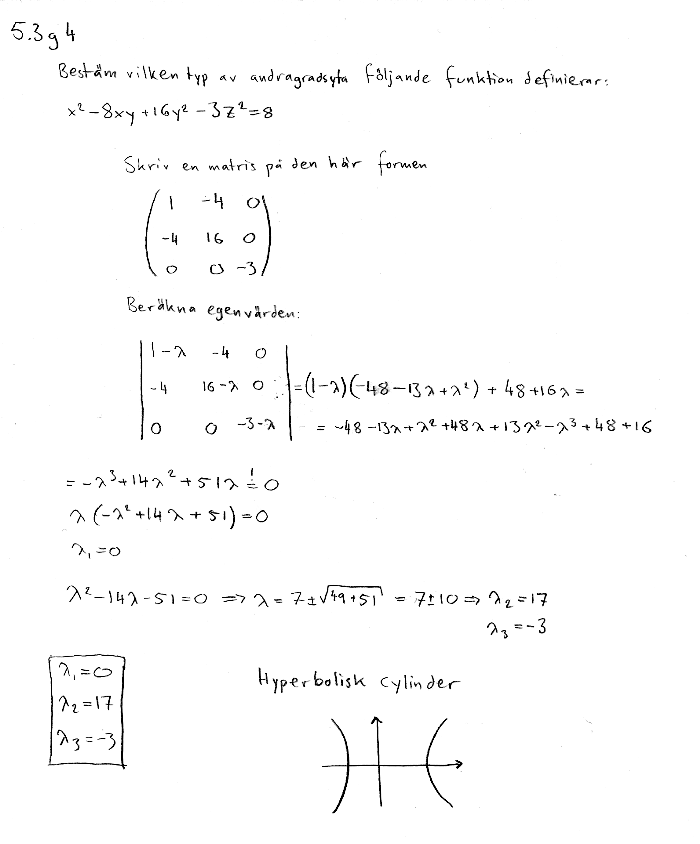 5.3g4
Bestäm vilken typ av andragradsyta följande funktion definierar:
x²-8xy+16y²-3z²=8
Skriv en matris på den här formen
1 -4 0
-4 16 0
0 0 -3
Beräkna egenvärden:
|1-λ -4 0|
|-4 16-λ 0| =(1-λ)(-48-13λ+λ²) + 48+16λ =
|0 0 -3-λ| = -48-13λ+λ²+48λ+13λ²-λ³+48+16
= -λ³+14λ²+51λ != 0
λ(-λ²+14λ+51)=0
λ₁=0
λ²-14λ-51=0 => λ= 7±√49+51 = 7±10 => λ₂=17
λ₃=-3
λ₁=0
λ₂=17
λ₃=-3
Hyperbolisk cylinder